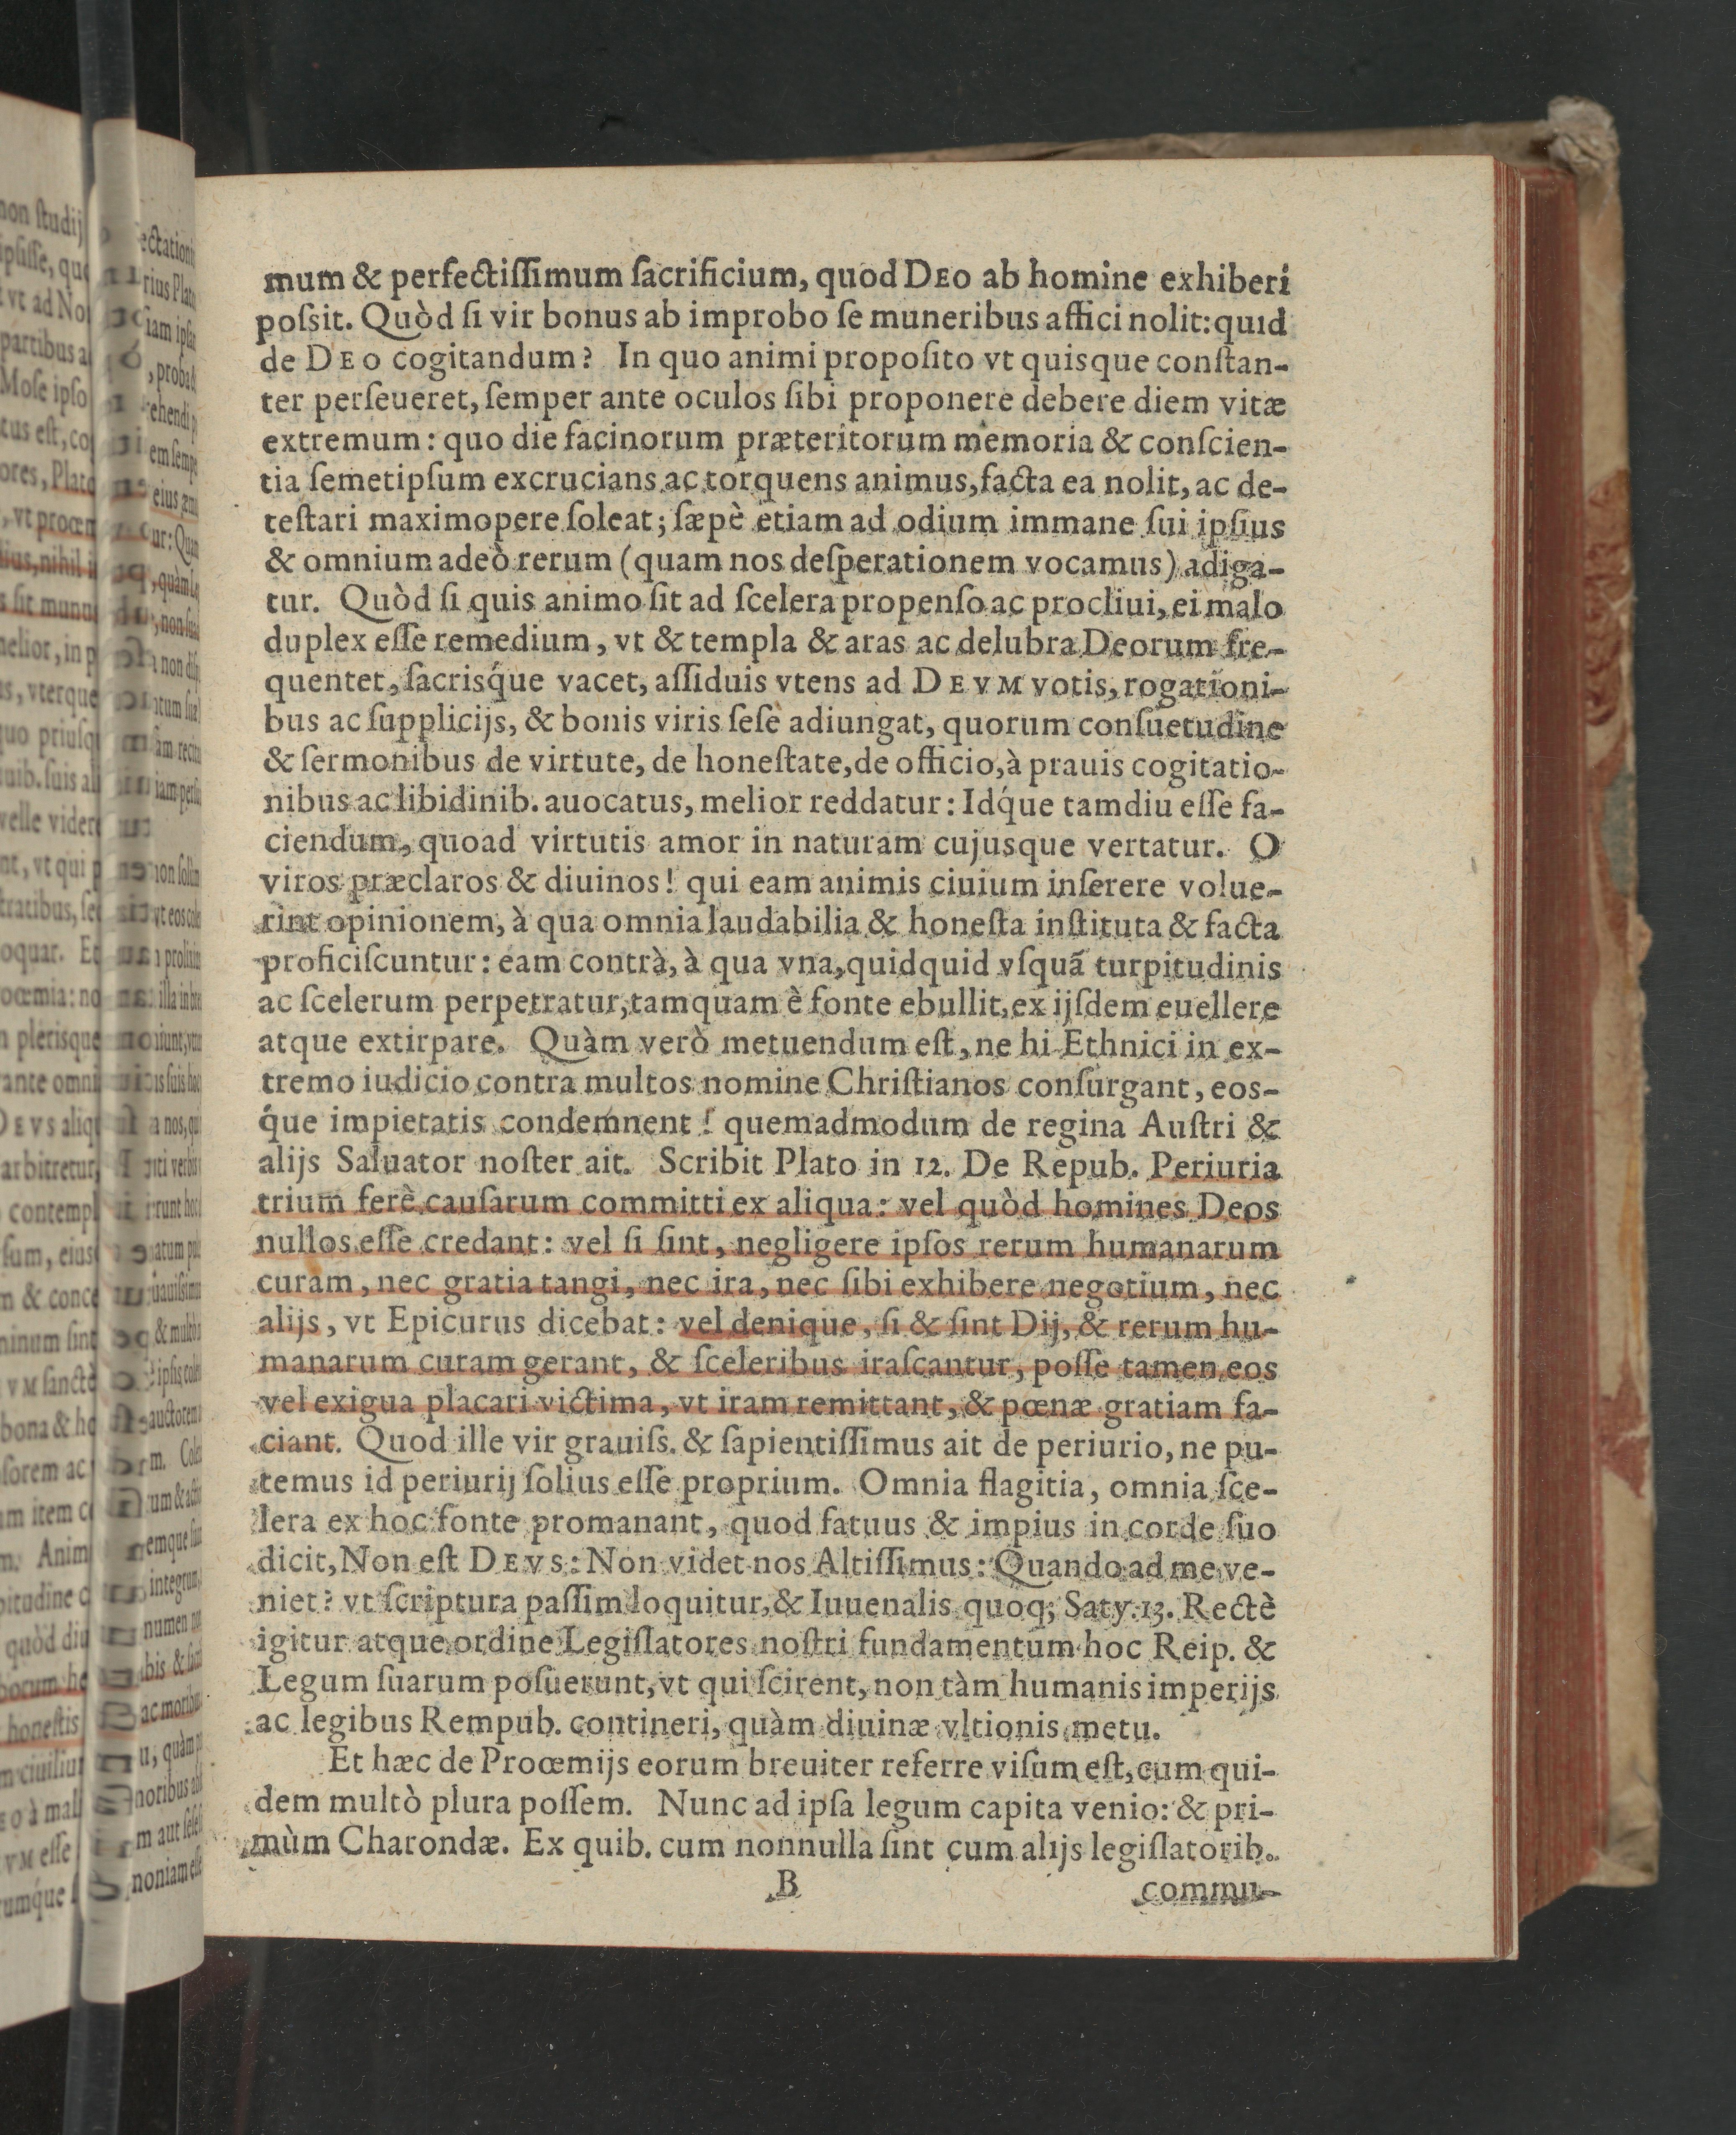 mum & perfectiſſimum ſacrificium, quod DEO ab homine exhiberi
poſsit. Quòd ſi vir bonus ab improbo ſe muneribus affici nolit: quid
de DEO cogitandum? In quo animi propoſito vt quisque conſtan-
ter perſeueret, ſemper ante oculos ſibi proponere debere diem vitæ
extremum: quo die facinorum præteritorum memoria & conſcien-
tia ſemetipſum excrucians ac torquens animus, facta ea nolit, ac de-
teſtari maximopere ſoleat; ſæpè etiam ad odium immane ſui ipſius
& omnium adeò rerum (quam nos deſperationem vocamus) adiga-
tur. Quòd ſi quis animo ſit ad ſcelera propenſo ac procliui, ei malo
duplex eſſe remedium, vt & templa & aras ac delubra Deorum fre-
quentet, ſacrisq́ue vacet, aſſiduis vtens ad DEVM votis, rogationi-
bus ac ſupplicijs, & bonis viris ſeſe adiungat, quorum conſuetudine
& ſermonibus de virtute, de honeſtate, de officio, à prauis cogitatio-
nibus ac libidinib. auocatus, melior reddatur: Idq́ue tamdiu eſſe fa-
ciendum, quoad virtutis amor in naturam cujusque vertatur. O
viros præclaros & diuinos! qui eam animis ciuium inſerere volue-
rint opinionem, à qua omnia laudabilia & honeſta inſtituta & facta
proficiſcuntur: eam contrà, à qua vna, quidquid vſquã turpitudinis
ac ſcelerum perpetratur, tamquam è fonte ebullit, ex ijſdem euellere
atque extirpare. Quàm verò metuendum eſt, ne hi Ethnici in ex-
tremo iudicio contra multos nomine Chriſtianos conſurgant, eos-
q́ue impietatis condemnent! quemadmodum de regina Auſtri &
alijs Saluator noſter ait. Scribit Plato in 12. De Repub. Periuria
trium ferè cauſarum committi ex aliqua: vel quòd homines Deos
nullos eſſe credant: vel ſi ſint, negligere ipſos rerum humanarum
curam, nec gratia tangi, nec ira, nec ſibi exhibere negotium, nec
alijs, vt Epicurus dicebat: vel denique, ſi & ſint Dij, & rerum hu-
manarum curam gerant, & ſceleribus iraſcantur, poſſe tamen eos
vel exigua placari victima, vt iram remittant, & pœnæ gratiam fa-
ciant. Quod ille vir grauiſs. & ſapientiſſimus ait de periurio, ne pu-
temus id periurij ſolius eſſe proprium. Omnia flagitia, omnia ſce-
lera ex hoc fonte promanant, quod fatuus & impius in corde ſuo
dicit, Non eſt DEVS: Non videt nos Altiſſimus: Quando ad me ve-
niet? vt ſcriptura paſſim loquitur, & Iuuenalis quoq; Saty. 13. Rectè
igitur atque ordine Legiſlatores noſtri fundamentum hoc Reip. &
Legum ſuarum poſuerunt, vt qui ſcirent, non tàm humanis imperijs
ac legibus Rempub. contineri, quàm diuinæ vltionis metu.
Et hæc de Proœmijs eorum breuiter referre viſum eſt, cum qui-
dem multò plura poſſem. Nunc ad ipſa legum capita venio: & pri-
mùm Charondæ. Ex quib. cum nonnulla ſint cum alijs legiſlatorib.
B commu-